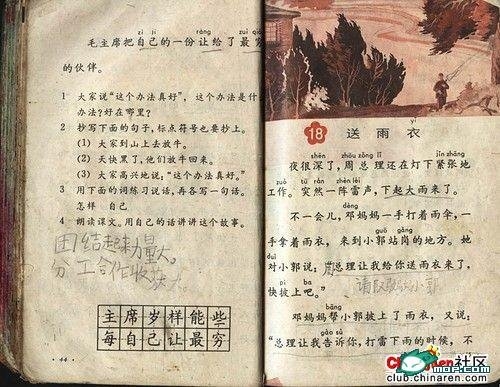 zì jǐ ràng zuì qió
毛主席把自己的一份让给了最穷
的伙伴。
1 大家说“这个办法真好”，这个办法是什
办法?好在哪里?
2 抄写下面的句子，标点符号也要抄上。
(1) 大家到山上去放牛。
(2) 天快黑了，他们放牛回来。
(3) 大家高兴地说：“这个办法真好。”
3 用下面的词练习说话，再各写一句话。
怎样 自己
4 朗读课文。用自己的话讲讲这个故事。
团结起来力量大。
分工合作收获大。
主席岁样能些
每自己让最穷
· 44 ·
18 送雨衣
yī
shēn zhōu zǒng lǐ jǐn zhāng
夜很深了，周总理还在灯下紧张地
zuò tū rán zhèn léi
工作。突然一阵雷声，下起大雨来了。
dèng
不一会儿，邓妈妈一手打着雨伞，一
guō
手拿着雨衣，来到小郭站岗的地方。她
duì
对小郭说：“周总理让我给你送雨衣来了，
pī ba
快披上吧。”
bāng
邓妈妈帮小郭披上了雨衣，又说：
gào sù
“总理让我告诉你，打雷下雨的时候，不
社区
club.chinaren.com